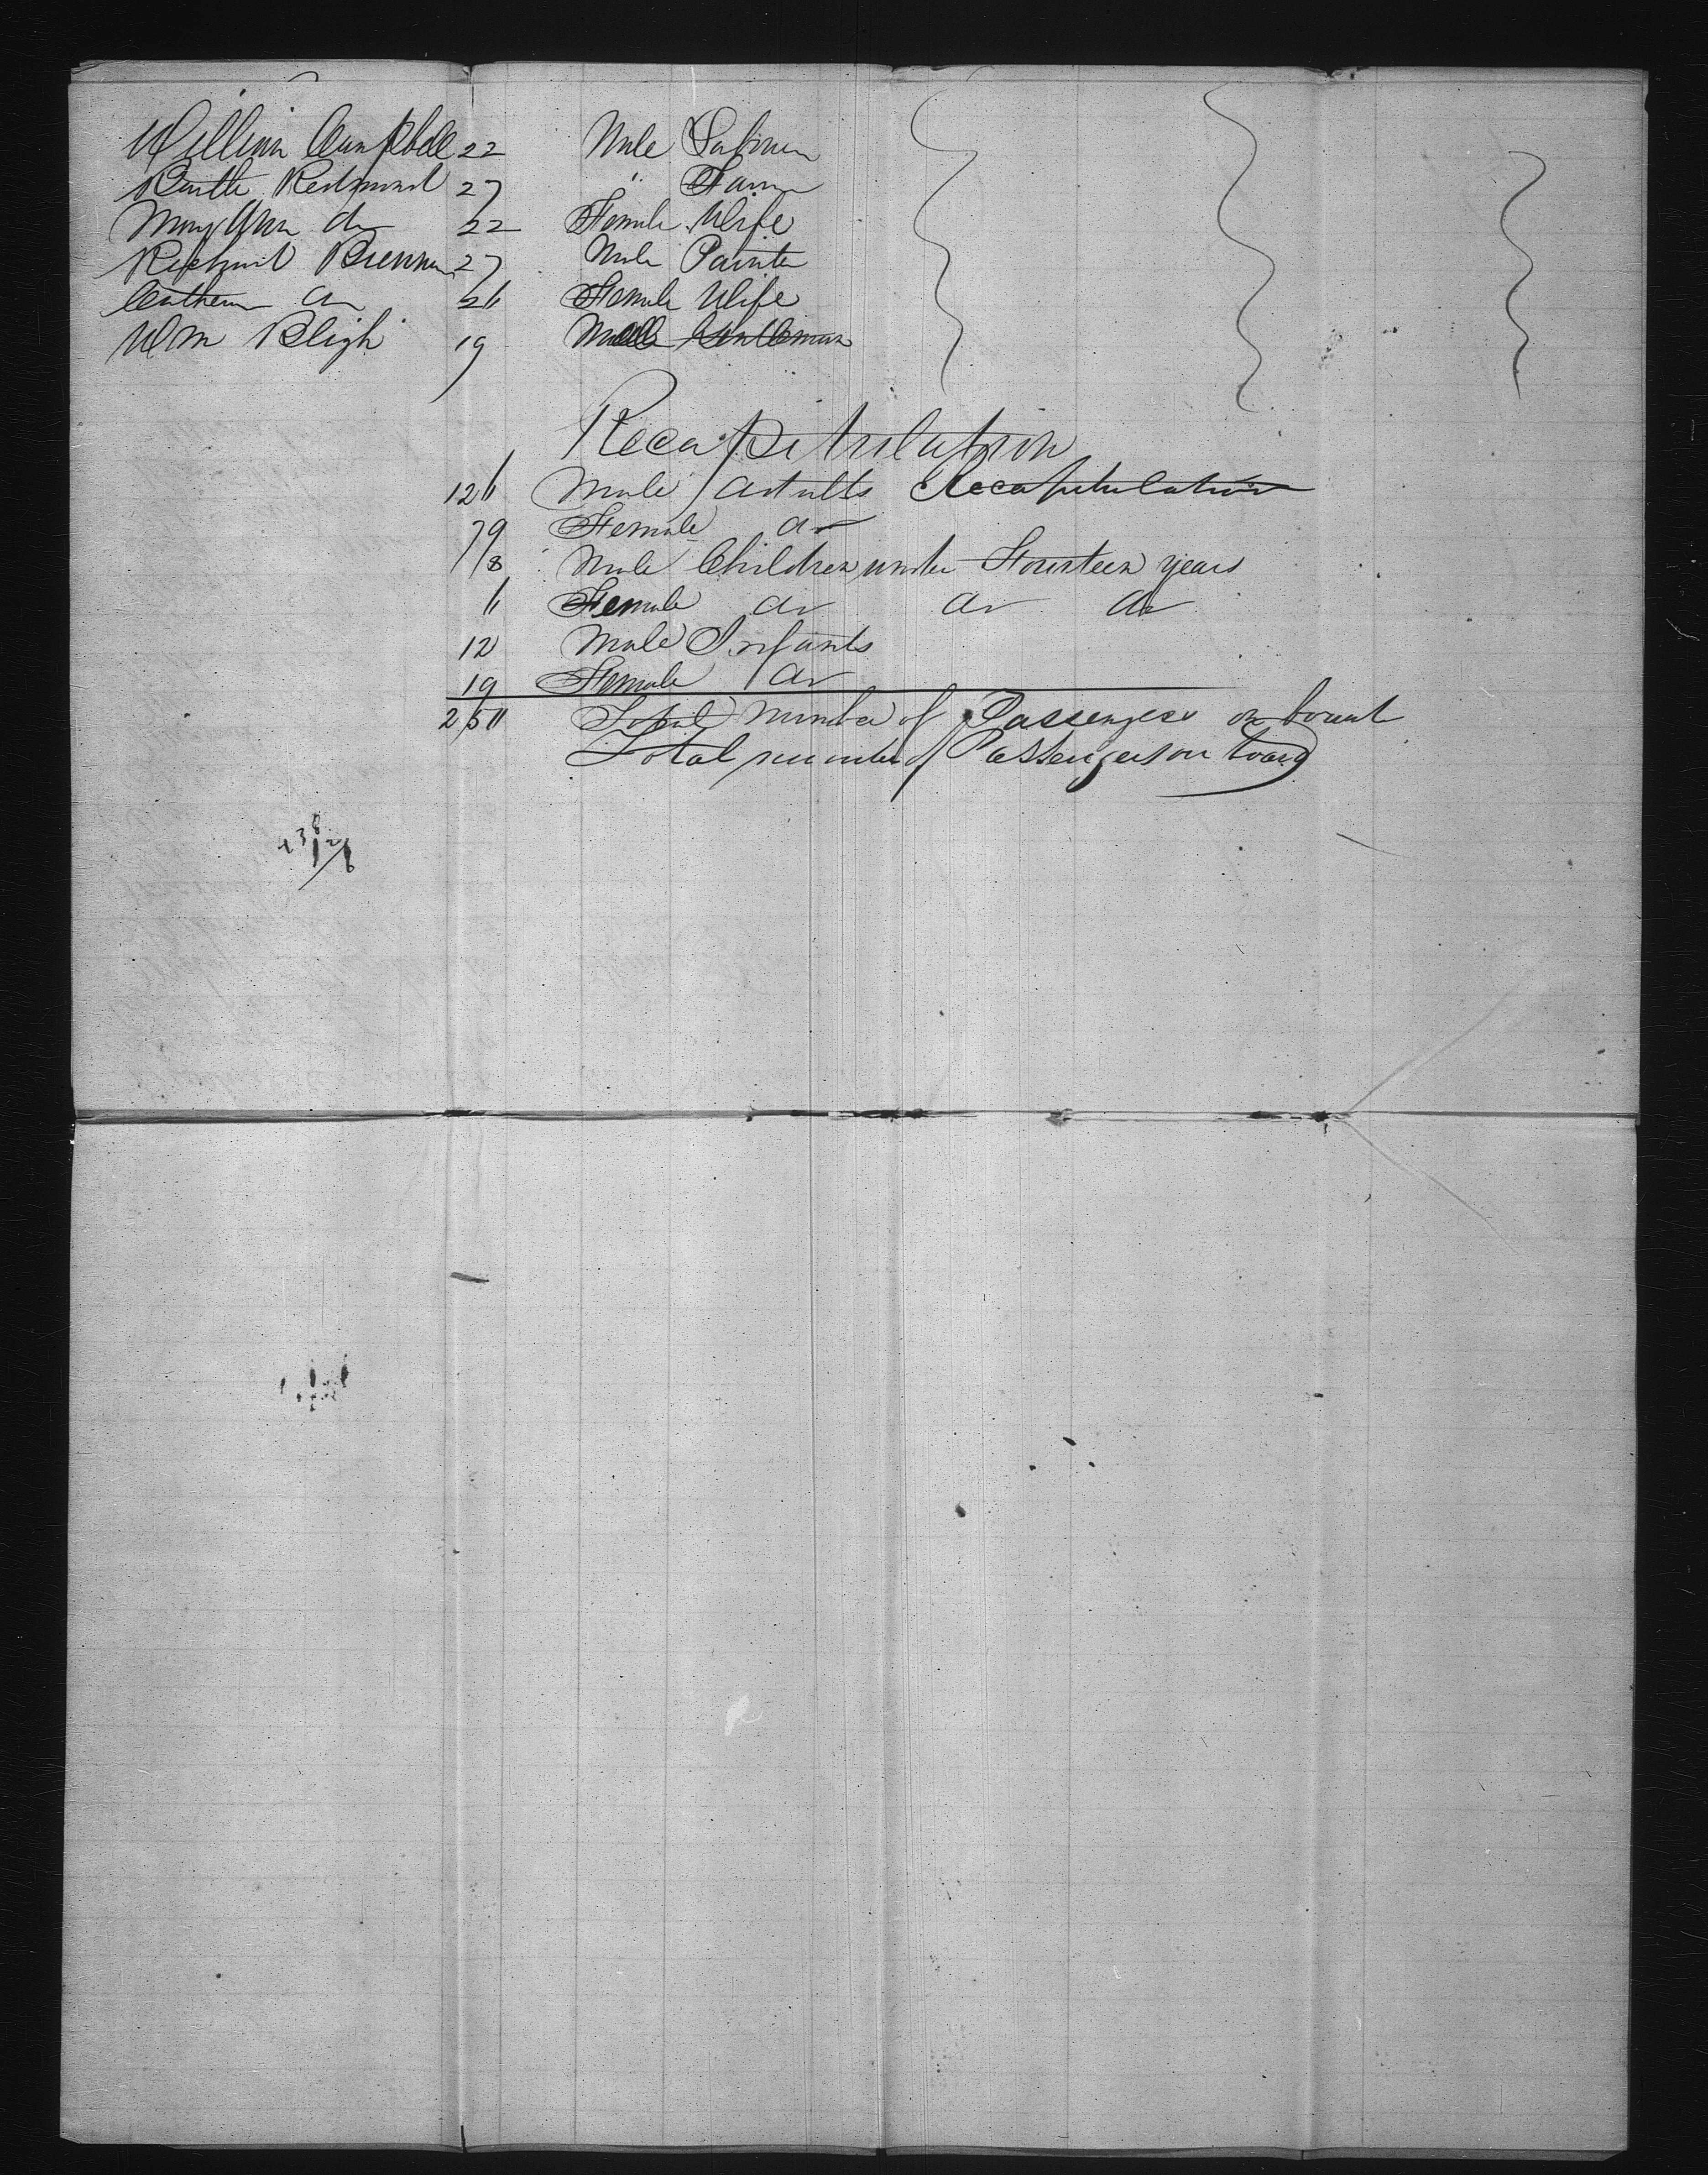 William Campbell 22 Male Labourer
Bartle Redmond 27 " Farmer
Mary Ann do 22 Female Wife
Richard Brennan 27 Male Painter
Catherine do 26 Female Wife
Wm Bligh 19 Male Gentleman
Recapitulation
126 Male Adults Recapitulation
79 Female do
8 Male Children under Fourteen years
6 Female do do do
12 Male Infants
19 Female do
250 Total Number of Passengers on board
Total number of Passengers on board